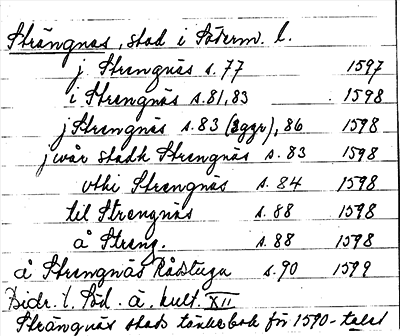 Strängnäs, stad i Söderm. l.
j Strengnäs s. 77 1597
i Strengnäs s. 81, 83 1598
j Strengnäs s. 83 (2 ggr), 86 1598
j wår stadh Strengnäs s. 83 1598
vthi Strengnäs s. 84 1598
til Strengnäs s. 88 1598
å Streng. s. 88 1598
å Strengnäs Rådstuga s. 90 1599
Bidr. t. Söd. ä. kult. XII
Strängnäs stads tänkebok för 1590-talet